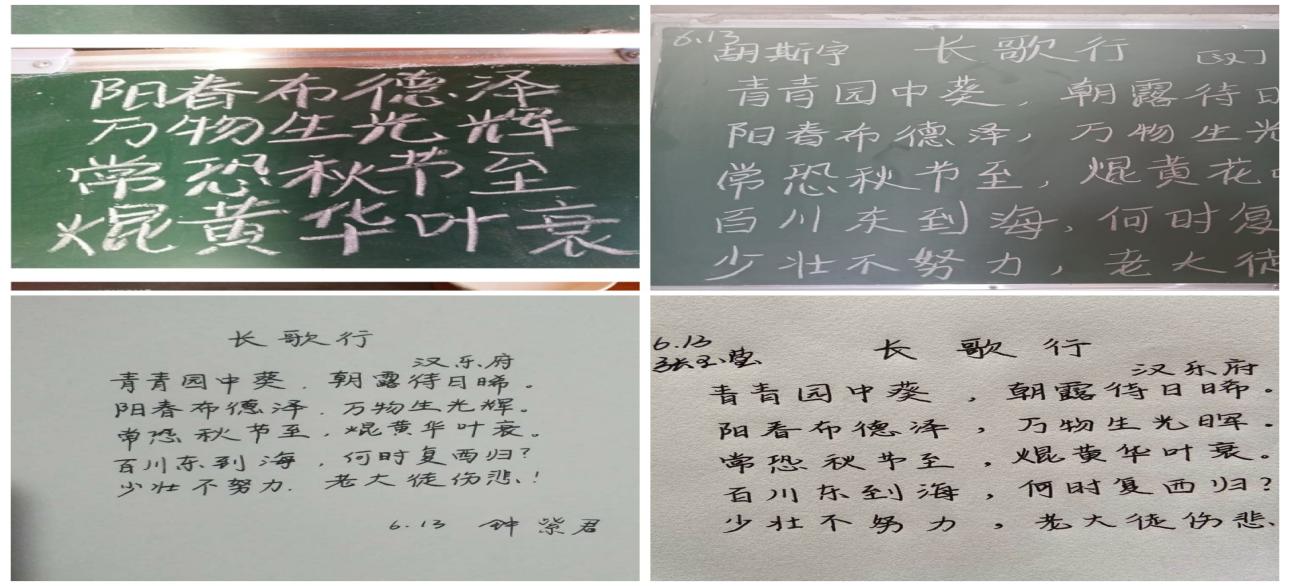 阳春布德泽
万物生光辉
常恐秋节至
焜黄华叶衰
6.13
胡斯宇 长歌行 [汉]
青青园中葵,朝露待日
阳春布德泽,万物生光
常恐秋节至,焜黄花叶
百川东到海,何时复
少壮不努力,老大徒
长歌行
汉乐府
青青园中葵,朝露待日晞。
阳春布德泽,万物生光辉。
常恐秋节至,焜黄华叶衰。
百川东到海,何时复西归?
少壮不努力.老大徒伤悲!
6.13 钟紫君
6.13
张玉莹 长歌行
汉乐府
青青园中葵,朝露待日晞。
阳春布德泽,万物生光晖。
常恐秋节至,焜黄华叶衰。
百川东到海,何时复西归?
少壮不努力,老大徒伤悲.